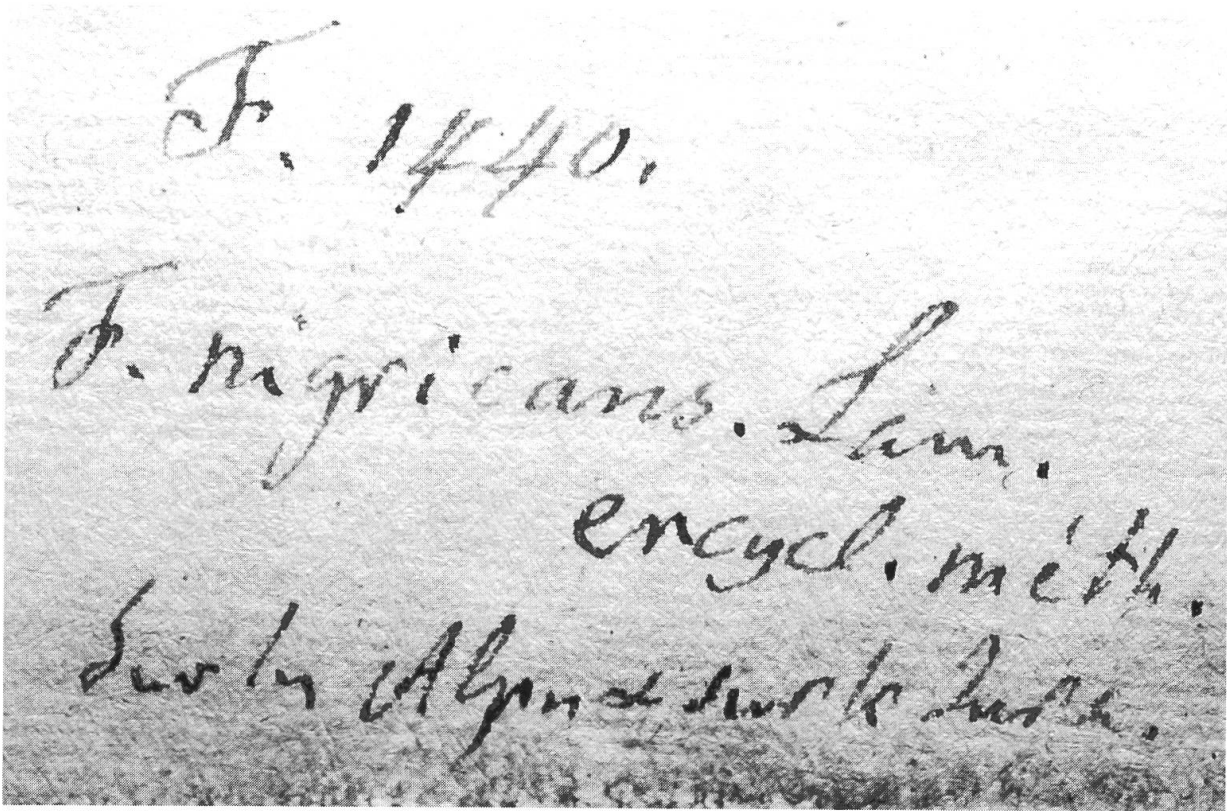 F. 1440.
F. nigricans. Lam.
encycl. méth.
Sur les Alpes & sur le Jura.